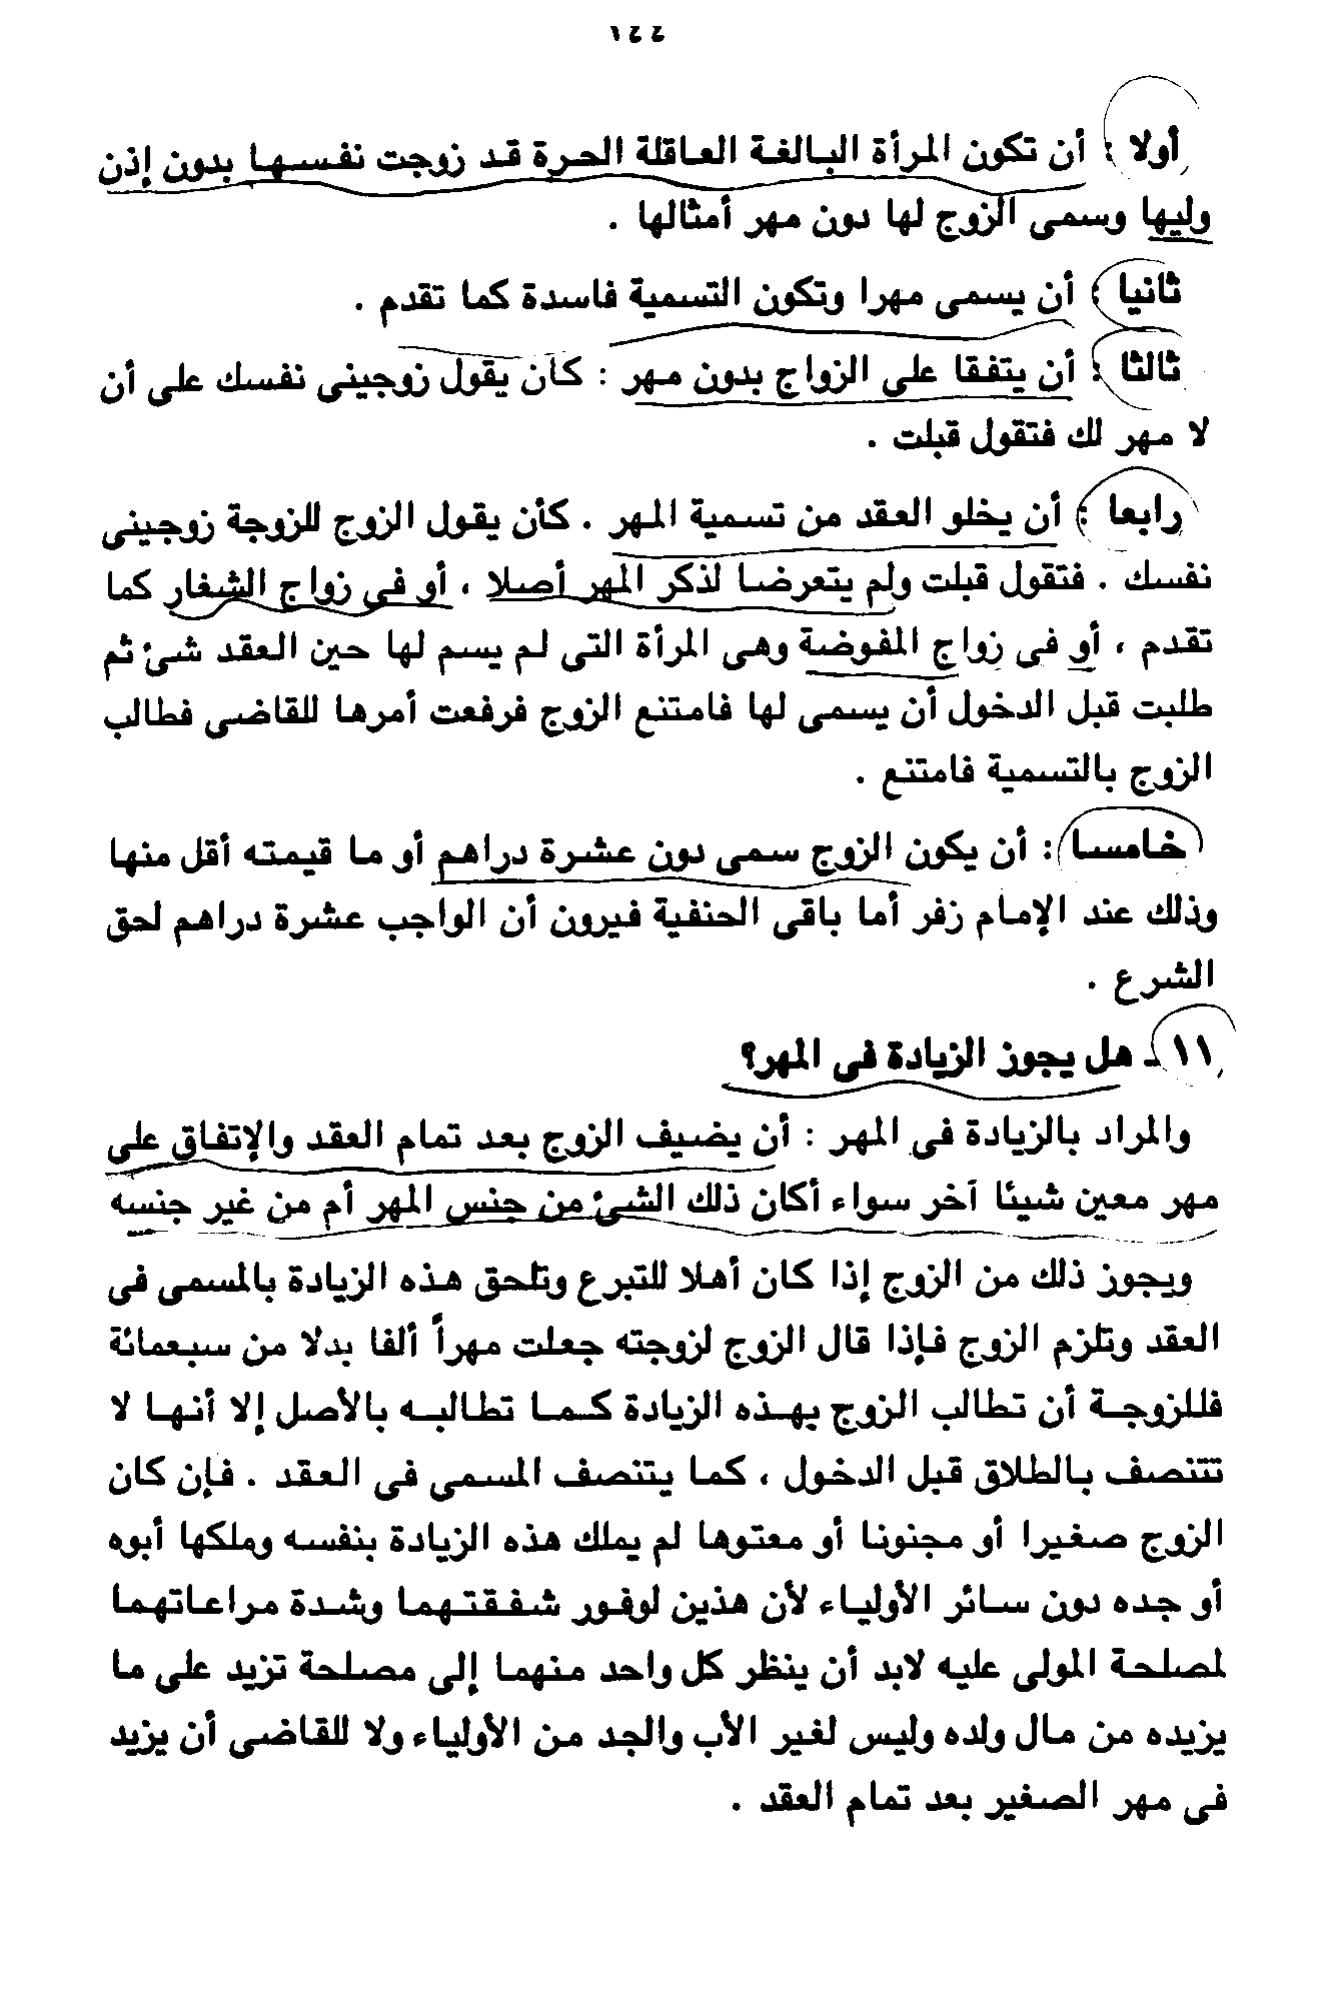 ١٤٤
أولا : أن تكون المرأة البالغة العاقلة الحرة قد زوجت نفسها بدون إذن
وليها وسمى الزوج لها دون مهر أمثالها .
ثانيا : أن يسمى مهرا وتكون التسمية فاسدة كما تقدم .
ثالثا : أن يتفقا على الزواج بدون مهر : كأن يقول زوجينى نفسك على أن
لا مهر لك فتقول قبلت .
رابعا : أن يخلو العقد من تسمية المهر . كأن يقول الزوج للزوجة زوجينى
نفسك . فتقول قبلت ولم يتعرضا لذكر المهر أصلا ، أو فى زواج الشغار كما
تقدم ، أو فى زواج المفوضة وهى المرأة التى لم يسم لها حين العقد شئ ثم
طلبت قبل الدخول أن يسمى لها فامتنع الزوج فرفعت أمرها للقاضى فطالب
الزوج بالتسمية فامتنع .
خامسا : أن يكون الزوج سمى دون عشرة دراهم أو ما قيمته أقل منها
وذلك عند الإمام زفر أما باقى الحنفية فيرون أن الواجب عشرة دراهم لحق
الشرع .
١١ ـ هل يجوز الزيادة فى المهر؟
والمراد بالزيادة فى المهر : أن يضيف الزوج بعد تمام العقد والإتفاق على
مهر معين شيئا آخر سواء أكان ذلك الشئ من جنس المهر أم من غير جنسه
ويجوز ذلك من الزوج إذا كان أهلا للتبرع وتلحق هذه الزيادة بالمسمى فى
العقد وتلزم الزوج فإذا قال الزوج لزوجته جعلت مهرأ ألفا بدلا من سبعمائة
فللزوجة أن تطالب الزوج بهذه الزيادة كما تطالبه بالأصل إلا أنها لا
تتنصف بالطلاق قبل الدخول ، كما يتنصف المسمى فى العقد . فإن كان
الزوج صغيرا أو مجنونا أو معتوها لم يملك هذه الزيادة بنفسه وملكها أبوه
أو جده دون سائر الأولياء لأن هذين لوفور شفقتهما وشدة مراعاتهما
لمصلحة المولى عليه لابد أن ينظر كل واحد منهما إلى مصلحة تزيد على ما
يزيده من مال ولده وليس لغير الأب والجد من الأولياء ولا للقاضى أن يزيد
فى مهر الصغير بعد تمام العقد .